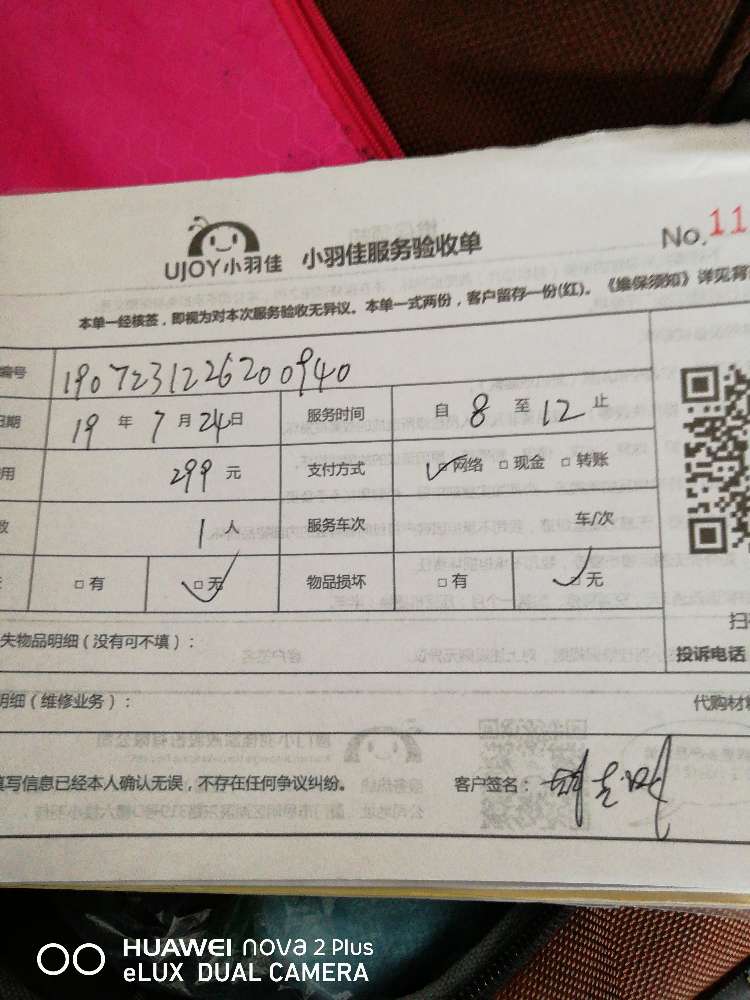 UJOY小羽佳 小羽佳服务验收单 No.11
本单一经核签，即视为对本次服务验收无异议。本单一式两份，客户留存一份(红)。《维保须知》详见背
编号 190723122620 0940
日期 19 年 7 月 24日 服务时间 自 8 至 12 止
用 299 元 支付方式 ☑网络 □现金 □转账
数 1 人 服务车次 车/次
□有 ☑无 物品损坏 □有 ☑无
扫
失物品明细（没有可不填）： 投诉电话
明细（维修业务）： 代购材料
填写信息已经本人确认无误，不存在任何争议纠纷。 客户签名：
HUAWEI nova 2 Plus
eLUX DUAL CAMERA